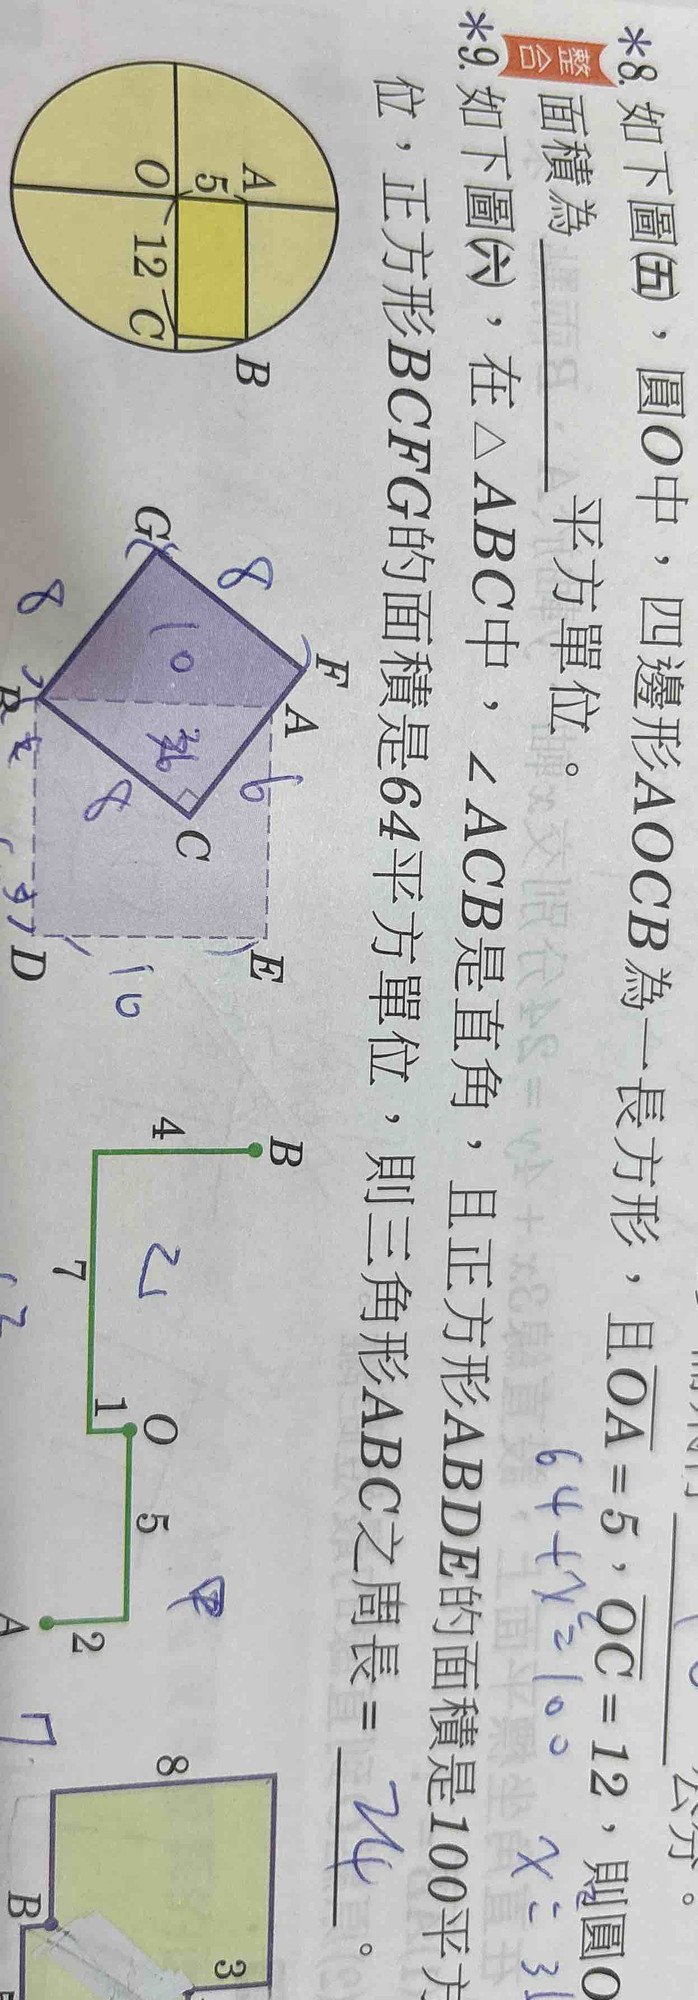 公分。
*8. 如下圖㈤,圓O中,四邊形AOCB為一長方形,且OA=5,OC=12,則圓O
整合 面積為______平方單位。
64+x²=100 x=
*9. 如下圖㈥,在△ABC中,∠ACB是直角,且正方形ABDE的面積是100平方
位,正方形BCFG的面積是64平方單位,則三角形ABC之周長=24。
A
5
O
12
C
B
F
A
8
G
10
36
6
C
8
8
B
E
10
D
B
4
7
1
O
5
2
A
8
3
B
7